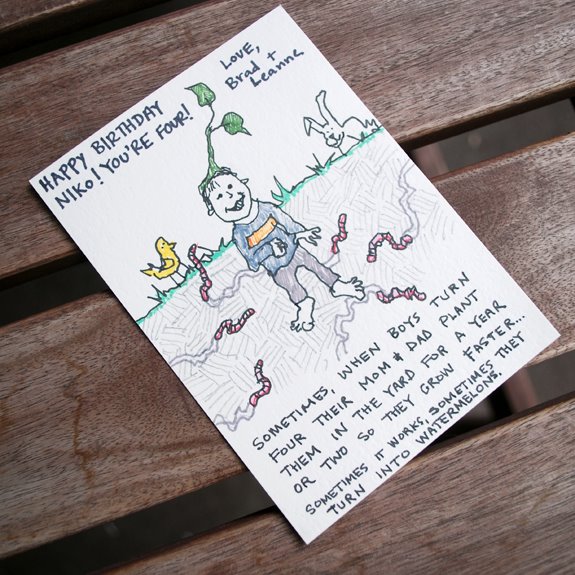 HAPPY BIRTHDAY
NIKO! YOU'RE FOUR!
LOVE,
Brad +
Leanne
SOMETIMES, WHEN BOYS TURN
FOUR THEIR MOM & DAD PLANT
THEM IN THE YARD FOR A YEAR
OR TWO SO THEY GROW FASTER...
SOMETIMES IT WORKS, SOMETIMES THEY
TURN INTO WATERMELONS.